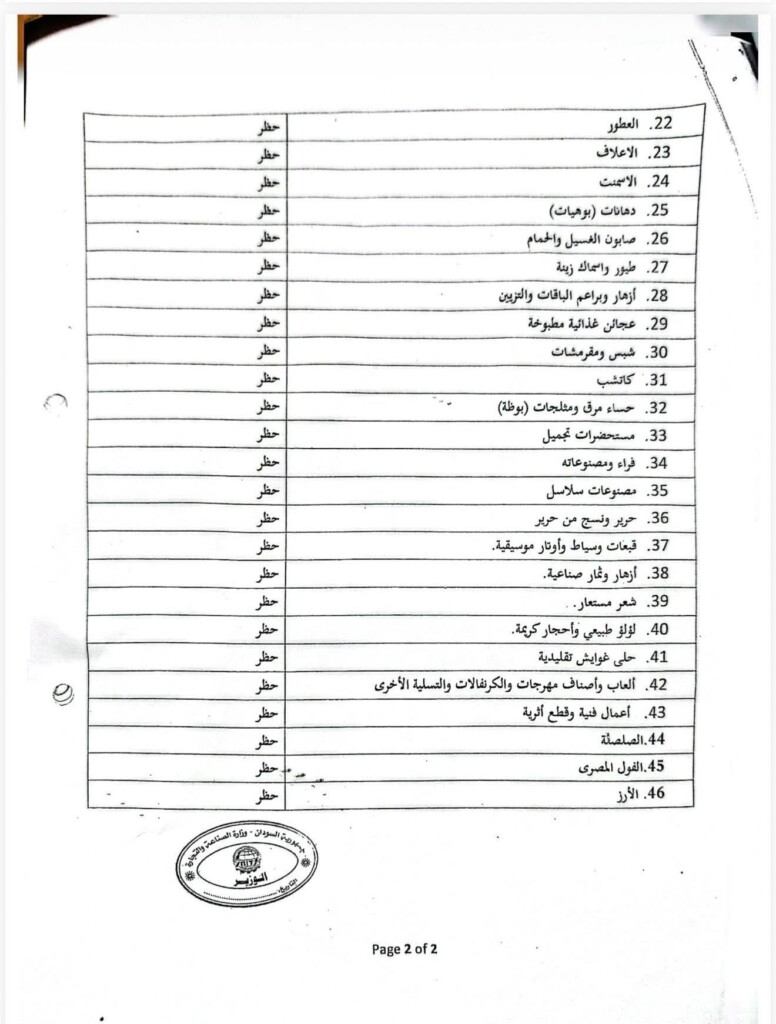 22. العطور حظر
23. الاعلاف حظر
24. الاسمنت حظر
25. دهانات (بوهيات) حظر
26. صابون الغسيل والحمام حظر
27. طيور واسماك زينة حظر
28. أزهار وبراعم الباقات والتزيين حظر
29. عجائن غذائية مطبوخة حظر
30. شبس ومقرمشات حظر
31. كاتشب حظر
32. حساء مرق ومثلجات (بوظة) حظر
33. مستحضرات تجميل حظر
34. فراء ومصنوعاته حظر
35. مصنوعات سلاسل حظر
36. حرير ونسج من حرير حظر
37. قبعات وسياط وأوتار موسيقية. حظر
38. أزهار وثمار صناعية. حظر
39. شعر مستعار. حظر
40. لؤلؤ طبيعي وأحجار كريمة. حظر
41. حلى غوايش تقليدية حظر
42. ألعاب وأصناف مهرجات والكرنفالات والتسلية الأخرى حظر
43. أعمال فنية وقطع أثرية حظر
44. الصلصلة حظر
45. الفول المصرى حظر
46. الأرز حظر
جمهورية السودان - وزارة الصناعة والتجارة
الوزير
التاريخ
Page 2 of 2